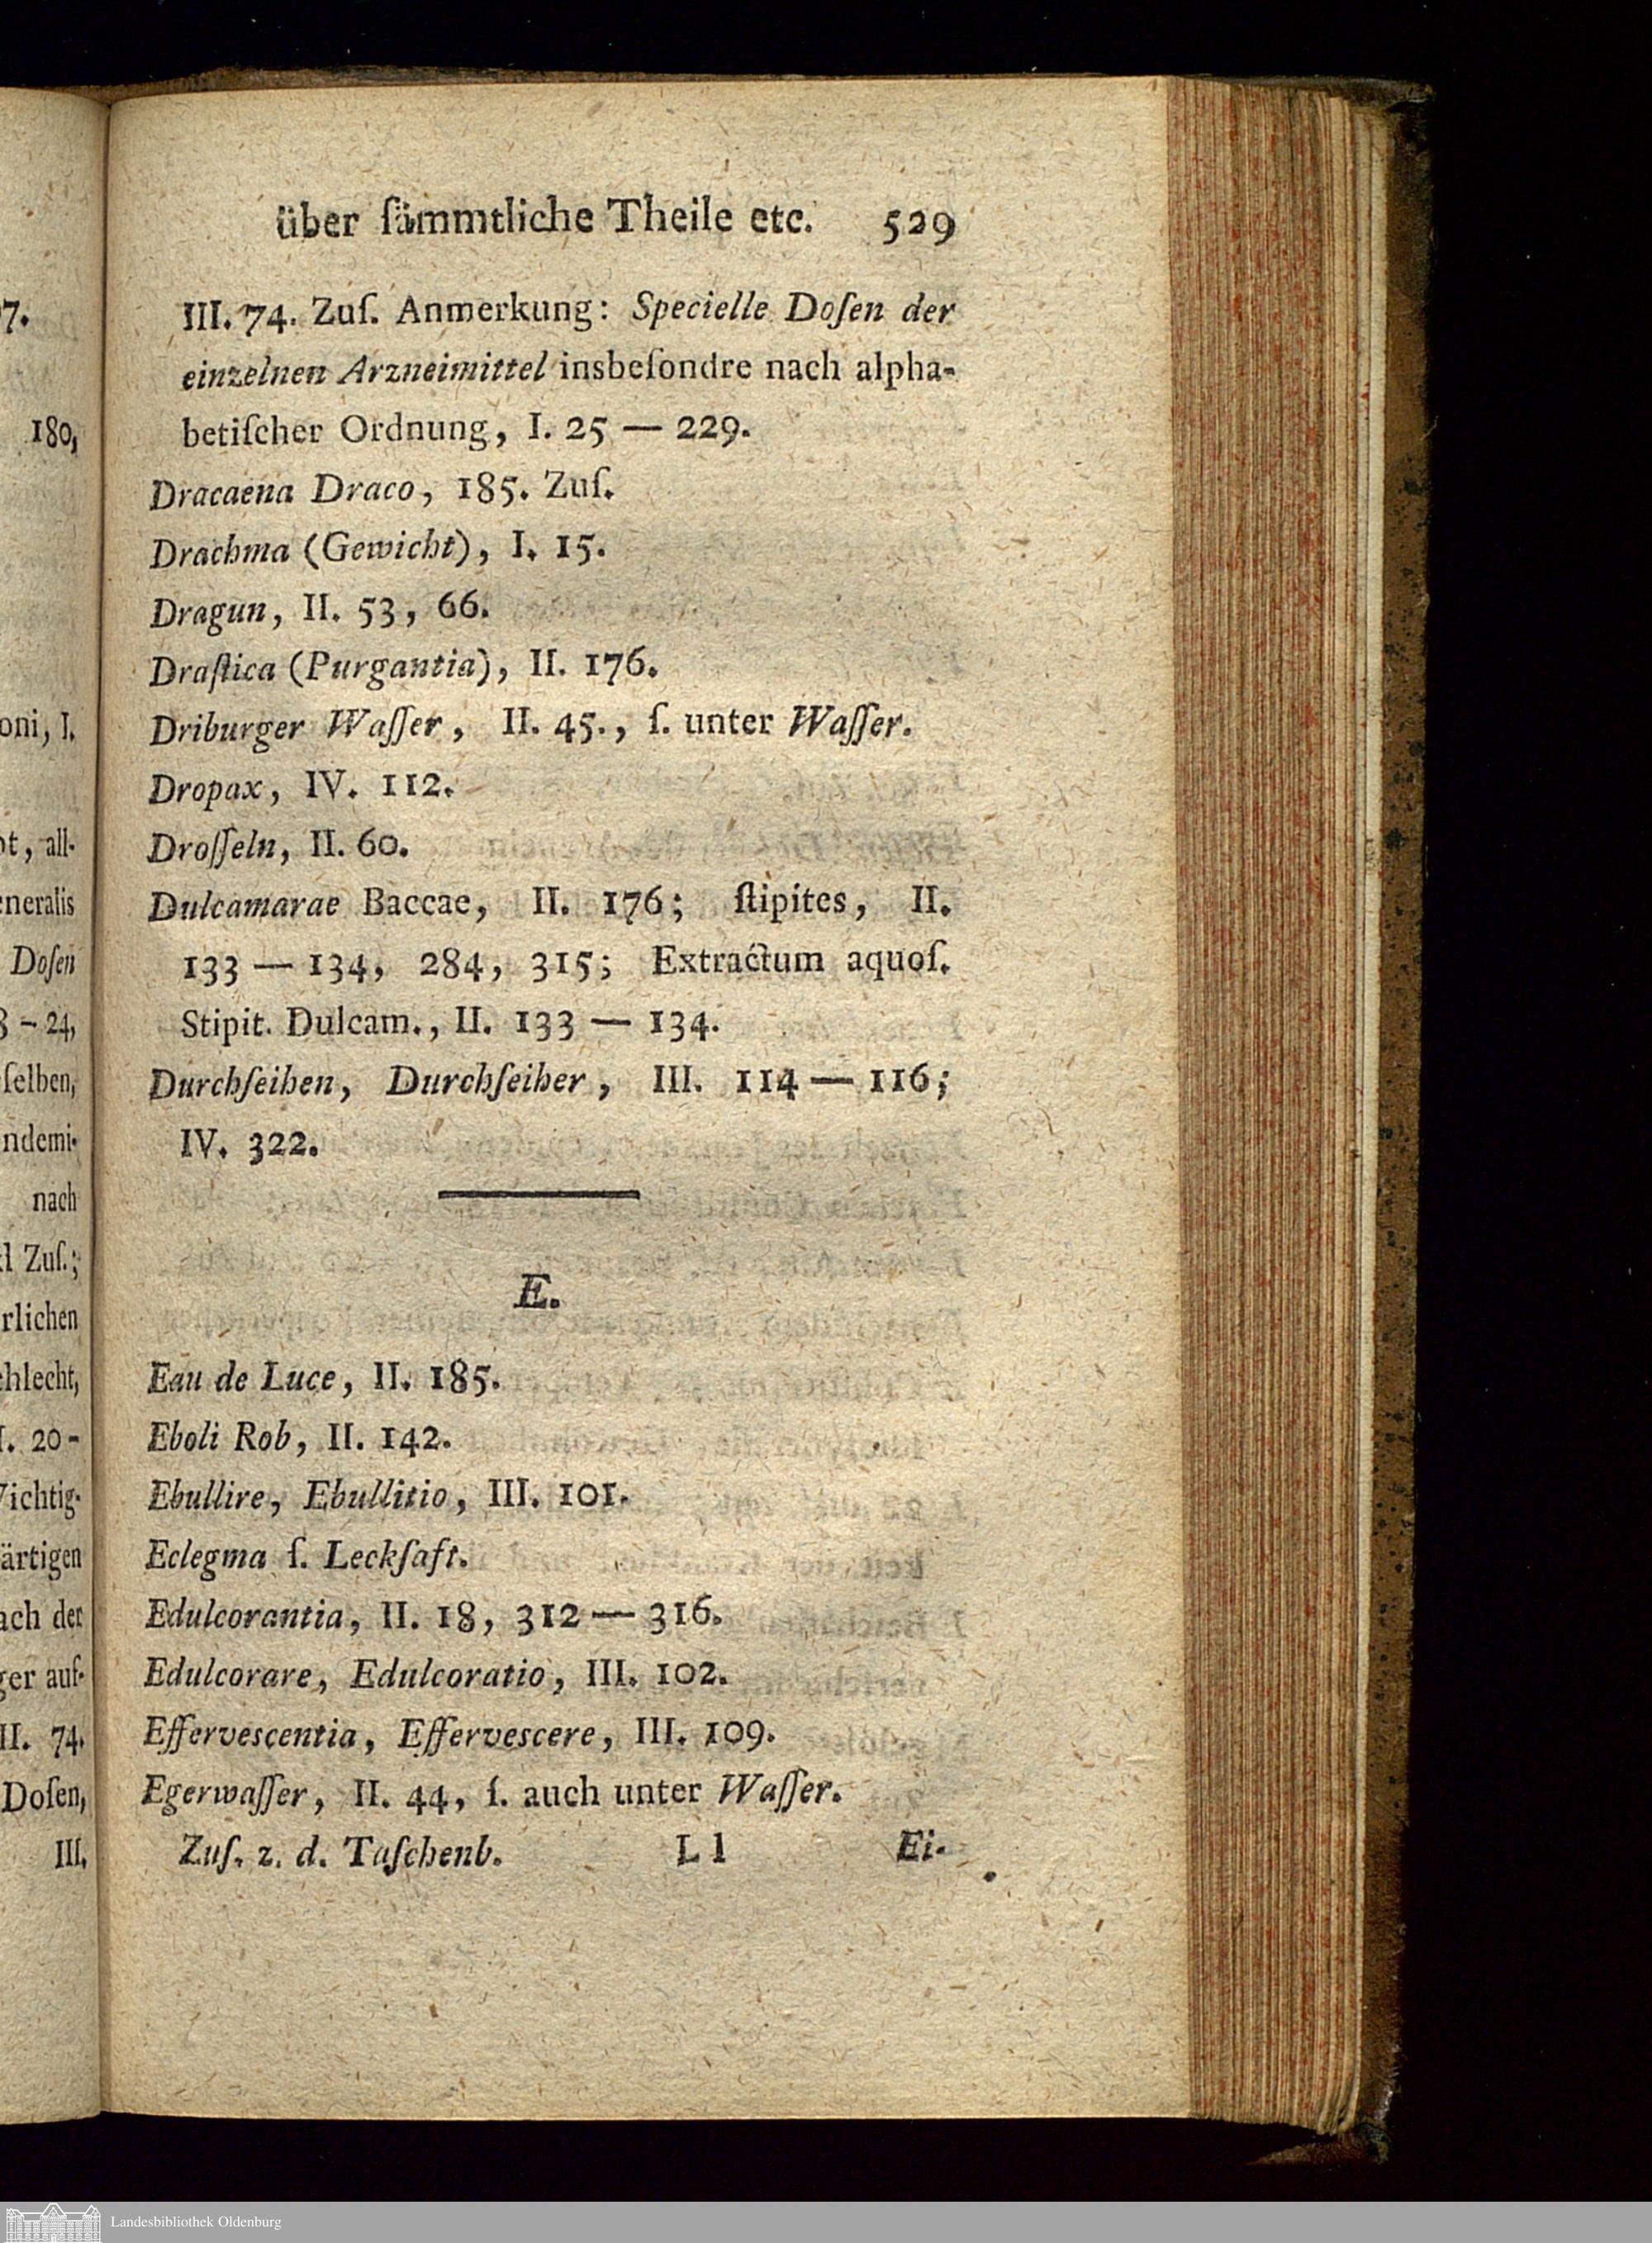 über ſämmtliche Theile etc. 529
III. 74. Zuſ. Anmerkung: Specielle Doſen der
einzelnen Arzneimittel insbeſondre nach alpha-
betiſcher Ordnung, I. 25 — 229.
Dracaena Draco, 185. Zuſ.
Drachma (Gewicht), I. 15.
Dragun, II. 53, 66.
Draſtica (Purgantia), II. 176.
Driburger Waſſer, II. 45., ſ. unter Waſſer.
Dropax, IV. 112.
Droſſeln, II. 60.
Dulcamarae Baccae, II. 176; ſtipites, II.
133 — 134, 284, 315; Extractum aquoſ.
Stipit. Dulcam., II. 133 — 134.
Durchſeihen, Durchſeiher, III. 114 — 116;
IV. 322.
E.
Eau de Luce, II. 185.
Eboli Rob, II. 142.
Ebullire, Ebullitio, III. 101.
Eclegma ſ. Leckſaft.
Edulcorantia, II. 18, 312 — 316.
Edulcorare, Edulcoratio, III. 102.
Effervescentia, Effervescere, III. 109.
Egerwaſſer, II. 44, ſ. auch unter Waſſer.
Zuſ. z. d. Taſchenb. L l Ei-
7.
180,
oni, I.
t, all-
neralis
Doſen
- 24,
ſelben,
ndemi-
nach
Zuſ.;
rlichen
hlecht,
. 20 -
ichtig-
ärtigen
ach der
ger auf-
II. 74.
Doſen,
III.
Landesbibliothek Oldenburg